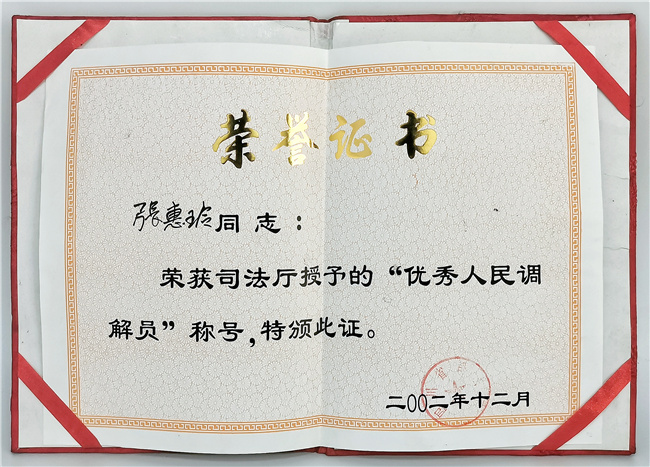 荣誉证书
張惠玲同志：
荣获司法厅授予的“优秀人民调
解员”称号，特颁此证。
二〇〇二年十二月